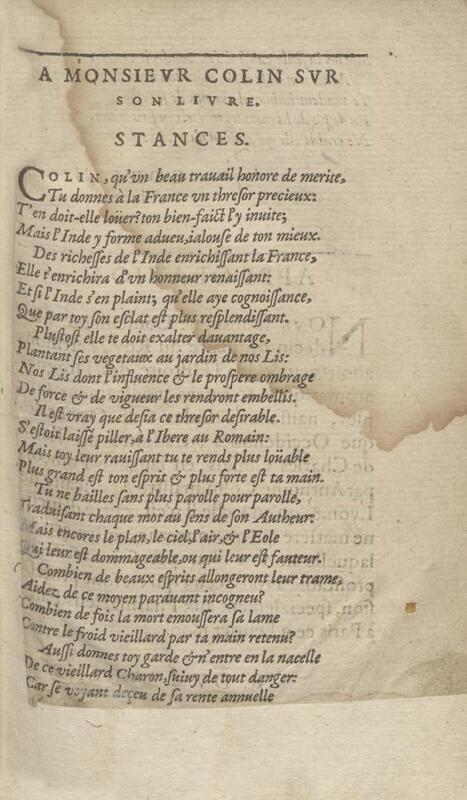 A MONSIEVR COLIN SVR
SON LIVRE.
STANCES.
COLIN, qu'vn beau trauail honore de merite,
Tu donnes à la France vn thresor precieux:
T'en doit-elle loüer? ton bien-faict l'y inuite;
Mais l'Inde y forme adueu, ialouse de ton mieux.
Des richesses de l'Inde enrichissant la France,
Elle t'enrichira d'vn honneur renaissant:
Et si l'Inde s'en plaint; qu'elle aye cognoissance,
Que par toy son esclat est plus resplendissant.
Plustost elle te doit exalter dauantage,
Plantant ses vegetaux au jardin de nos Lis:
Nos Lis dont l'influence & le prospere ombrage
De force & de vigueur les rendront embellis.
Il est vray que desia ce thresor desirable.
S'estoit laissé piller, à l'Ibere au Romain:
Mais toy leur rauissant tu te rends plus loüable
Plus grand est ton esprit & plus forte est ta main.
Tu ne bailles sans plus parolle pour parolle,
Traduisant chaque mot au sens de son Autheur:
Mais encores le plan, le ciel, l'air, & l'Eole
Qui leur est dommageable, ou qui leur est fauteur.
Combien de beaux esprits allongeront leur trame,
Aidez de ce moyen parauant incogneu?
Combien de fois la mort emoussera sa lame
Contre le froid vieillard par ta main retenu?
Aussi donnes toy garde & n'entre en la nacelle
De ce vieillard Charon, suiuy de tout danger:
Car se voyant deçeu de sa rente annuelle